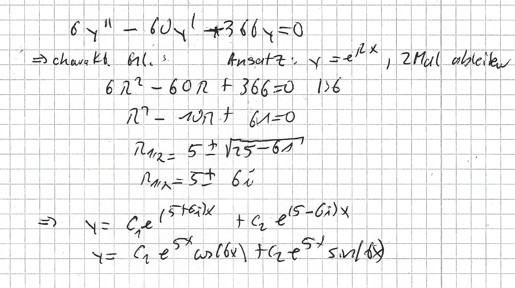 6y'' - 60y' + 366y = 0
⇒ charakt. Gl.: Ansatz: y = e^{rx}, 2 Mal ableiten
6r² - 60r + 366 = 0 |:6
r² - 10r + 61 = 0
r_{1/2} = 5 ± √(25-61)
r_{1/2} = 5 ± 6i
⇒ y = C₁e^{(5+6i)x} + C₂e^{(5-6i)x}
y = C₁e^{5x} cos(6x) + C₂e^{5x} sin(6x)